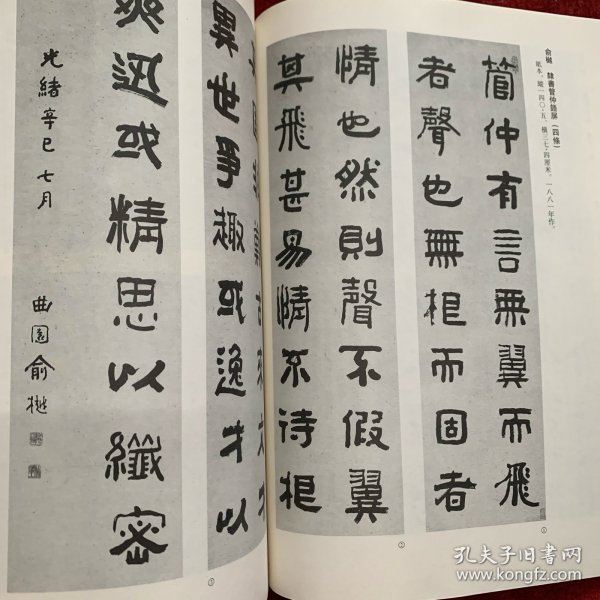 俞樾 隸書管仲語屏（四條）
紙本，縱一四〇·五，橫三七·四厘米。一八八一年作。
管仲有言無翼而飛
者聲也無根而固者
①
情也然則聲不假翼
其飛甚易情不待根
②
異世爭趣或逸才以
③
爽迅或精思以纖密
光緒辛巳七月
曲園俞樾
孔夫子旧书网
www.kongfz.com